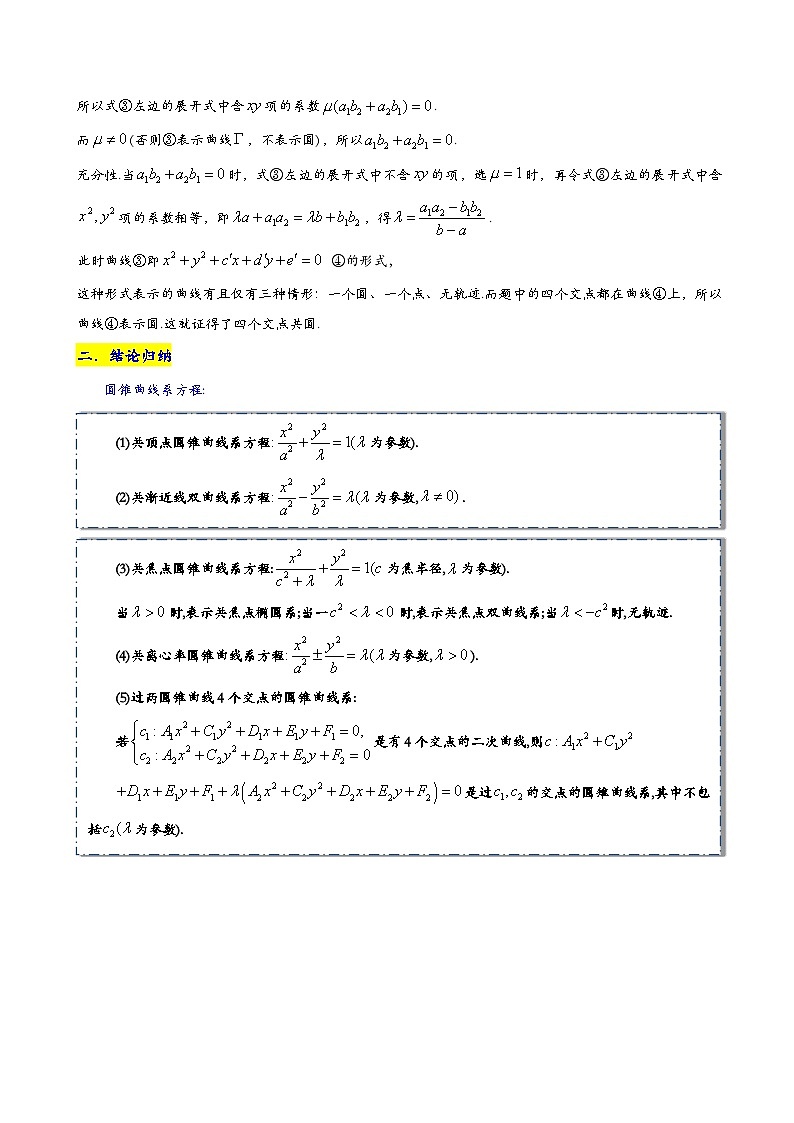 所以式③左边的展开式中含xy项的系数μ(a₁b₂+a₂b₁)=0.
而μ≠0(否则③表示曲线Γ，不表示圆)，所以a₁b₂+a₂b₁=0.
充分性.当a₁b₂+a₂b₁=0时，式③左边的展开式中不含xy的项，选μ=1时，再令式③左边的展开式中含
x²,y²项的系数相等，即λa+a₁a₂=λb+b₁b₂，得λ=(a₁a₂−b₁b₂)/(b−a).
此时曲线③即x²+y²+c′x+d′y+e′=0 ④的形式，
这种形式表示的曲线有且仅有三种情形：一个圆、一个点、无轨迹.而题中的四个交点都在曲线④上，所以
曲线④表示圆.这就证得了四个交点共圆.
二．结论归纳
圆锥曲线系方程:
(1)共顶点圆锥曲线系方程: x²/a²+y²/λ=1(λ为参数).
(2)共渐近线双曲线系方程: x²/a²−y²/b²=λ(λ为参数,λ≠0).
(3)共焦点圆锥曲线系方程:x²/(c²+λ)+y²/λ=1(c为焦半径,λ为参数).
当λ>0时,表示共焦点椭圆系;当一c²<λ<0时,表示共焦点双曲线系;当λ<−c²时,无轨迹.
(4)共离心率圆锥曲线系方程: x²/a²±y²/b=λ(λ为参数,λ>0).
(5)过两圆锥曲线4个交点的圆锥曲线系:
若{c₁:A₁x²+C₁y²+D₁x+E₁y+F₁=0, c₂:A₂x²+C₂y²+D₂x+E₂y+F₂=0 是有4个交点的二次曲线,则c:A₁x²+C₁y²
+D₁x+E₁y+F₁+λ(A₂x²+C₂y²+D₂x+E₂y+F₂)=0是过c₁,c₂的交点的圆锥曲线系,其中不包
括c₂(λ为参数).